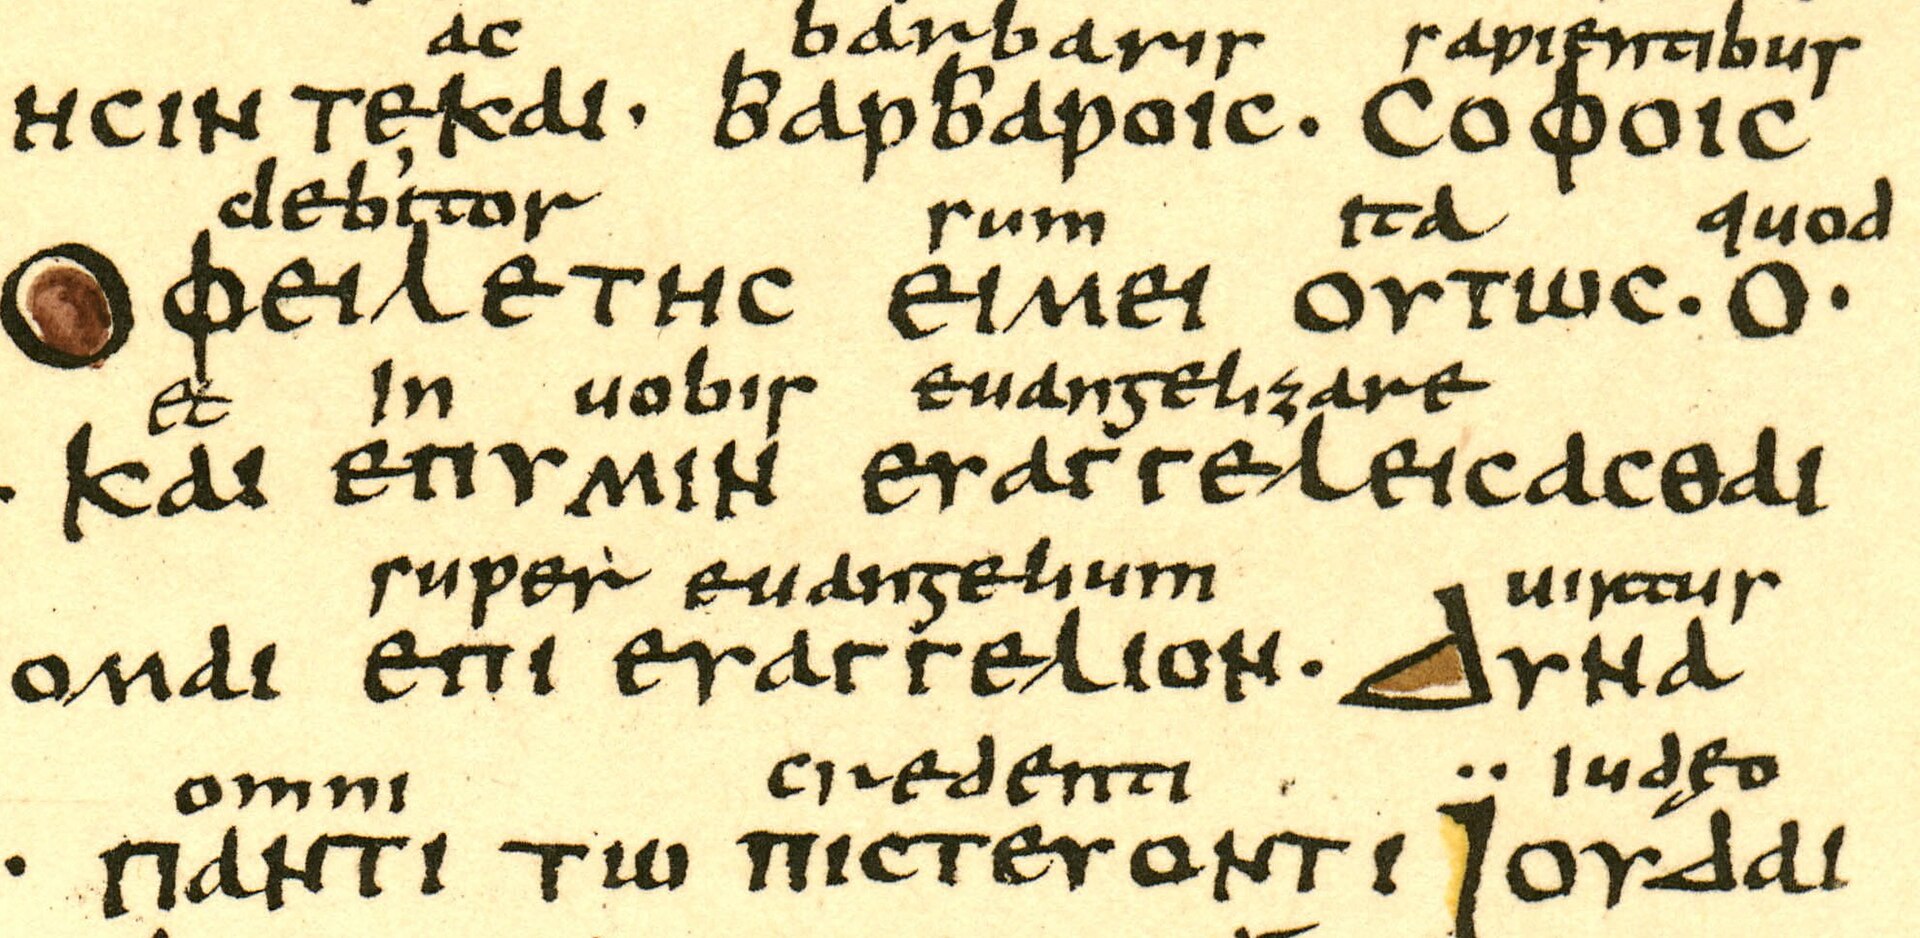 ac barbaris sapientibus
ΗϹΙΝ ΤΕΚΑΙ· ΒΑΡΒΑΡΟΙϹ· ϹΟΦΟΙϹ
debitor sum ita quod
ΟΦΕΙΛΕΤΗϹ ΕΙΜΕΙ ΟΥΤΩϹ· Ο·
et In uobis euangelizare
· ΚΑΙ ΕΠΥΜΙΝ ΕΥΑΓΓΕΛΕΙϹΑϹΘΑΙ
super euangelium uirtus
ΟΜΑΙ ΕΠΙ ΕΥΑΓΓΕΛΙΟΝ· ΔΥΝΑ
omni credenti iudęo
· ΠΑΝΤΙ ΤΩ ΠΙϹΤΕΥΟΝΤΙ ΙΟΥΔΑΙ